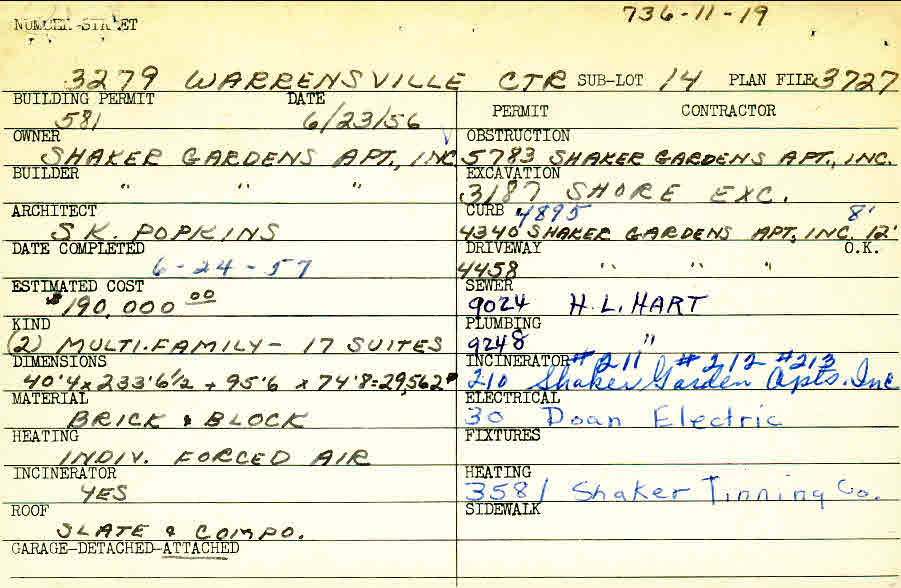 736-11-19
NUMBER-STREET
3279 WARRENSVILLE CTR SUB-LOT 14 PLAN FILE 3727
BUILDING PERMIT DATE
581 6/23/56
PERMIT CONTRACTOR
OWNER
SHAKER GARDENS APT., INC
BUILDER
" " "
ARCHITECT
S.K. POPKINS
DATE COMPLETED
6-24-57
ESTIMATED COST
$190,000 00
KIND
(2) MULTI.FAMILY- 17 SUITES
DIMENSIONS
40'4 x 233'6 1/2 + 95'6 x 74'8=29,562#
MATERIAL
BRICK & BLOCK
HEATING
INDIV. FORCED AIR
INCINERATOR
YES
ROOF
SLATE & COMPO.
GARAGE-DETACHED-ATTACHED
OBSTRUCTION
5783 SHAKER GARDENS APT., INC.
EXCAVATION
3187 SHORE EXC.
CURB 4895 8'
4340 SHAKER GARDENS APT, INC. 12'
DRIVEWAY O.K.
4458 " " "
SEWER
9024 H.L.HART
PLUMBING
9248 "
INCINERATOR #211 #212 #213
210 Shaker Garden Apts. Inc
ELECTRICAL
30 Doan Electric
FIXTURES
HEATING
3581 Shaker Tinning Co.
SIDEWALK